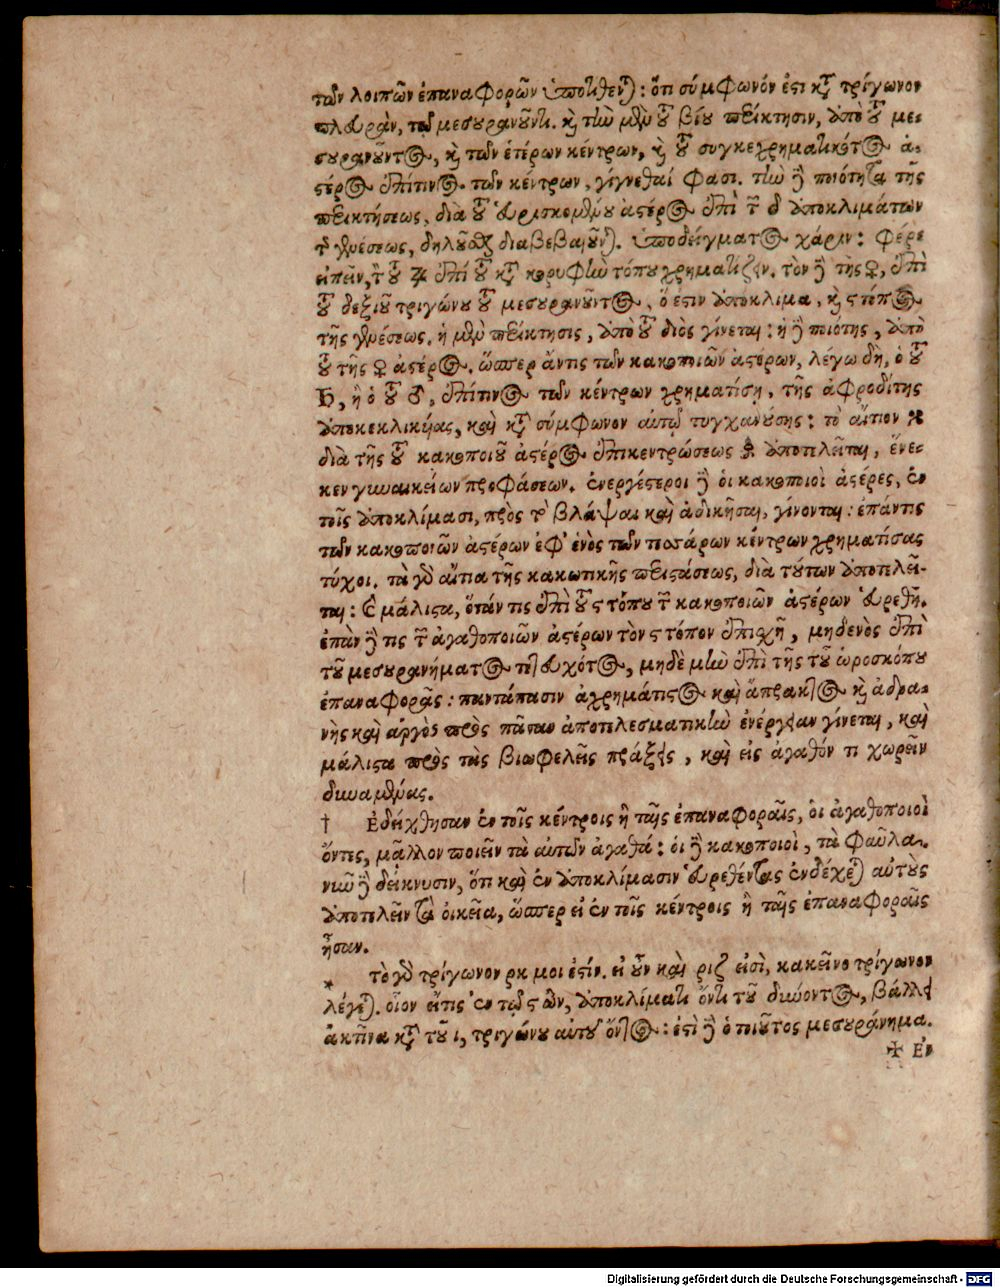 των λοιπῶν ἐπαναφορῶν ὑποτίθεται: ὅτι σύμφωνόν ἐστι κατὰ τρίγωνον
πλευρὰν, τῷ μεσουρανοῦντι. καὶ τὴν μὲν τοῦ βίου περίκτησιν, ἀπὸ τοῦ με-
σουρανοῦντος, καὶ των ἑτέρων κέντρων, καὶ τοῦ συγκεχρηματικότος ἀ-
στέρος ἐπίτινος των κέντρων, γίγνεθαί φασι. τὴν δὲ ποιότητα τῆς
περικτήσεως, διὰ τοῦ εὑρισκομένου ἀστέρος ἐπὶ τῶν δ ἀποκλιμάτων
τῆς γενέσεως, δηλοῦσθαι διαβεβαιοῦνται. ὑποδείγματος χάριν: φέρε
εἰπεῖν, τοῦ ♃ ἐπί τοῦ κατὰ κορυφὴν τόπου χρηματίζειν. τὸν δὲ τῆς ♀, ἐπὶ
τοῦ δεξιοῦ τριγώνου τοῦ μεσουρανοῦντος, ὅ ἐστιν ἀπόκλιμα, καὶ ϛ τόπος
τῆς γενέσεως. ἡ μὲν περίκτησις, ἀπὸ τοῦ διὸς γίνεται: ἡ δὲ ποιότης, ἀπὸ
τοῦ τῆς ♀ ἀστέρος. ὥσπερ ἄντις των κακοποιῶν ἀστέρων, λέγω δὴ, ὁ τοῦ
♄, ἢ ὁ τοῦ ♂, ἐπίτινος των κέντρων χρηματίσῃ, τῆς ἀφροδίτης
ἀποκεκλικυίας, καὶ κατὰ σύμφωνον αὐτῷ τυγχανούσης: τὸ αἴτιον
διὰ τῆς τοῦ κακοποιοῦ ἀστέρος ἐπικεντρώσεως ἀποτελεῖται, ἕνε-
κεν γυναικείων προφάσεων. ἐνεργέστεροι δὲ ὁι κακοποιοὶ ἀστέρες, ἐν
τοῖς ἀποκλίμασι, πρὸς τὸ βλάψαι καὶ ἀδικῆσαι, γίνονται: ἐπάντις
των κακοποιῶν ἀστέρων ἐφ' ἑνὸς των τεσσάρων κέντρων χρηματίσας
τύχοι. τὰ γὰρ αἴτια τῆς κακωτικῆς περιστάσεως, διὰ τούτων ἀποτελεῖ-
ται: καὶ μάλιστα, ὅτάν τις ἐπὶ τοῦ ϛ τόπου τῶν κακοποιῶν ἀστέρων εὑρεθῇ.
ἐπὰν δὲ τις τῶν ἀγαθοποιῶν ἀστέρων τὸν ϛ τόπον ἐπισχῇ, μηδενὸς ἐπὶ
τοῦ μεσουρανήματος τετευχότος, μηδὲ μὴν ἐπὶ τῆς τοῦ ὡροσκόπου
ἐπαναφορᾶς: παντάπασιν ἀχρημάτιστος καὶ ἄπρακτος καὶ ἀδρα-
νὴς καὶ ἀργὸς πρὸς πᾶσαν ἀποτελεσματικὴν ἐνέργειαν γίνεται, καὶ
μάλιστα πρὸς τὰς βιωφελεῖς πράξεις, καὶ εἰς ἀγαθόν τι χωρεῖν
δυναμένας.
† Ἐδείχθησαν ἐν τοῖς κέντροις ἢ ταῖς ἐπαναφοραῖς, ὁι ἀγαθοποιοὶ
ὄντες, μᾶλλον ποιεῖν τὰ αὐτῶν ἀγαθά: ὁι δὲ κακοποιοὶ, τὰ φαῦλα.
νῦν δὲ δείκνυσιν, ὅτι καὶ ἐν ἀποκλίμασιν εὑρεθέντας ἐνδέχεται αὐτοὺς
ἀποτελεῖν τὰ ὀικεῖα, ὥσπερ εἰ ἐν τοῖς κέντροις ἢ ταῖς ἐπαναφοραῖς
ἦσαν.
* τὸ γὰρ τρίγωνον ρκ μοι ἐσίν. εἰ οὖν καὶ ριζ εἰσὶ, κακεῖνο τρίγωνον
λέγεται. οἷον εἴτις ἐν τῷ ϛ ὢν, ἀποκλίματι ὄντι τοῦ δύνοντος, βάλλει
ἀκτῖνα κατὰ τοῦ ι, τριγώνου αὐτοῦ ὄντος: ἐστὶ δὲ ὁ τοιοῦτος μεσουράνημα.
✠ Ἐν